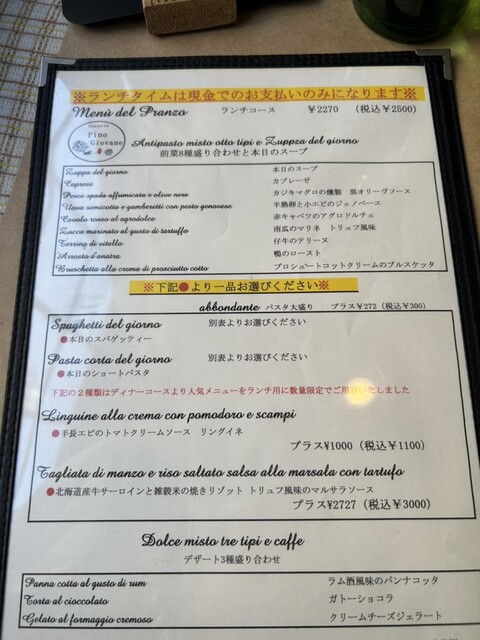 ※ランチタイムは現金でのお支払いのみになります※
Menù del Pranzo ランチコース ￥2270 (税込￥2500)
Pino
Giovane
Antipasto misto otto tipi e Zuppza del giorno
前菜8種盛り合わせと本日のスープ
Zuppa del giorno 本日のスープ
Caprese カプレーゼ
Pesce spada affumicata e olive nere カジキマグロの燻製 黒オリーヴソース
Uova semicotta e gamberetti con pesto genovese 半熟卵と小エビのジェノベーエ
Cavolo rosso al agrodolce 赤キャベツのアグロドルチェ
Zucca marinato al gusto di tartuffo 南瓜のマリネ トリュフ風味
Terrina di vitello 仔牛のテリーヌ
Arrosto d'anatra 鴨のロースト
Bruschetta alla crema di prosciutto cotto プロシュートコットクリームのブルスケッタ
※下記●より一品お選びください※
abbondante パスタ大盛り プラス¥272 (税込￥300)
Spaghetti del giorno 別表よりお選びください
●本日のスパゲッティー
Pasta corta del giorno 別表よりお選びください
●本日のショートパスタ
下記の２種類はディナーコースより人気メニューをランチ用に数量限定でご用意いたしました
Linguine alla crema con pomodoro e scampi
●手長エビのトマトクリームソース リングイネ
プラス¥1000 (税込￥1100)
Tagliata di manzo e riso saltato salsa alla marsala con tartufo
●北海道産牛サーロインと雑穀米の焼きリゾット トリュフ風味のマルサラソース
プラス¥2727 (税込￥3000)
Dolce misto tre tipi e caffe
デザート3種盛り合わせ
Panna cotta al gusto di rum ラム酒風味のパンナコッタ
Torta al cioccolato ガトーショコラ
Gelato al formaggio cremoso クリームチーズジェラート